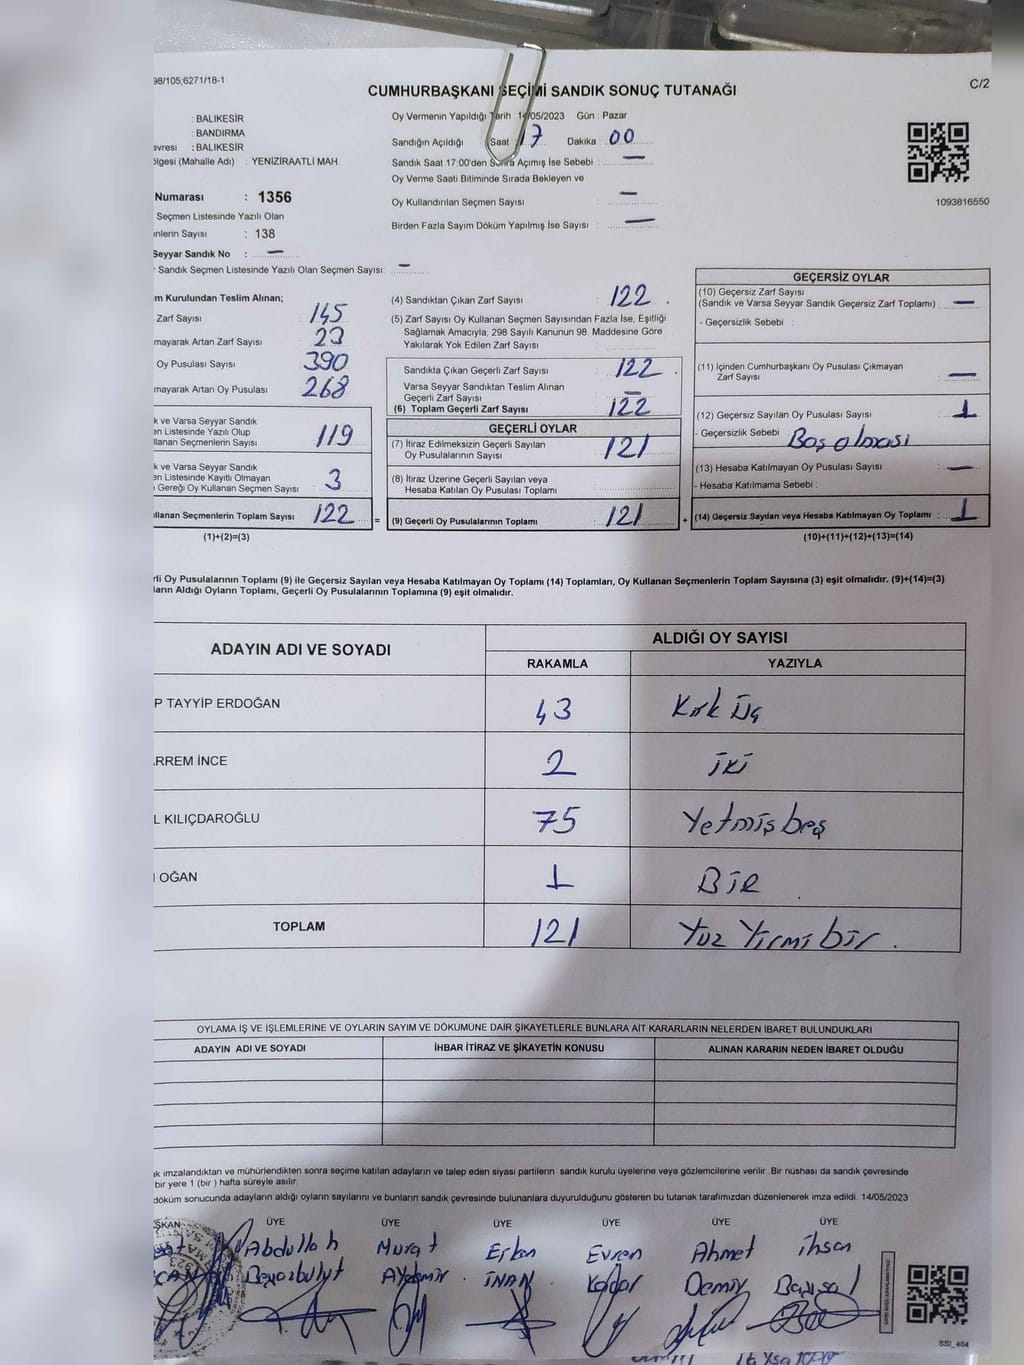 98/105,6271/18-1
C/2
CUMHURBAŞKANI SEÇİMİ SANDIK SONUÇ TUTANAĞI
: BALIKESİR
: BANDIRMA
: BALIKESİR
ölgesi (Mahalle Adı) : YENİZİRAATLİ MAH.
Numarası : 1356
Seçmen Listesinde Yazılı Olan
nlerin Sayısı : 138
Seyyar Sandık No : —
Sandık Seçmen Listesinde Yazılı Olan Seçmen Sayısı: —
Oy Vermenin Yapıldığı Tarih : 14/05/2023 Gün : Pazar
Sandığın Açıldığı Saat 17 Dakika : 00
Sandık Saat 17:00'den Sonra Açımış İse Sebebi : —
Oy Verme Saati Bitiminde Sırada Bekleyen ve
Oy Kullandırılan Seçmen Sayısı : —
Birden Fazla Sayım Döküm Yapılmış İse Sayısı : —
1093816550
m Kurulundan Teslim Alınan;
Zarf Sayısı 145
mayarak Artan Zarf Sayısı 23
Oy Pusulası Sayısı 390
mayarak Artan Oy Pusulası 268
k ve Varsa Seyyar Sandık
en Listesinde Yazılı Olup
llanan Seçmenlerin Sayısı 119
k ve Varsa Seyyar Sandık
en Listesinde Kayıtlı Olmayan
Gereği Oy Kullanan Seçmen Sayısı 3
llanan Seçmenlerin Toplam Sayısı 122 =
(1)+(2)=(3)
(4) Sandıktan Çıkan Zarf Sayısı : 122
(5) Zarf Sayısı Oy Kullanan Seçmen Sayısından Fazla İse, Eşitliği
Sağlamak Amacıyla, 298 Sayılı Kanunun 98. Maddesine Göre
Yakılarak Yok Edilen Zarf Sayısı :
Sandıkta Çıkan Geçerli Zarf Sayısı : 122
Varsa Seyyar Sandıktan Teslim Alınan
Geçerli Zarf Sayısı : —
(6) Toplam Geçerli Zarf Sayısı : 122
GEÇERLİ OYLAR
(7) İtiraz Edilmeksizin Geçerli Sayılan
Oy Pusulalarının Sayısı : 121
(8) İtiraz Üzerine Geçerli Sayılan veya
Hesaba Katılan Oy Pusulası Toplamı :
(9) Geçerli Oy Pusulalarının Toplamı : 121 +
GEÇERSİZ OYLAR
(10) Geçersiz Zarf Sayısı
(Sandık ve Varsa Seyyar Sandık Geçersiz Zarf Toplamı) : —
- Geçersizlik Sebebi :
(11) İçinden Cumhurbaşkanı Oy Pusulası Çıkmayan
Zarf Sayısı : —
(12) Geçersiz Sayılan Oy Pusulası Sayısı : 1
- Geçersizlik Sebebi : Boş olması
(13) Hesaba Katılmayan Oy Pusulası Sayısı : —
- Hesaba Katılmama Sebebi :
(14) Geçersiz Sayılan veya Hesaba Katılmayan Oy Toplamı : 1
(10)+(11)+(12)+(13)=(14)
rli Oy Pusulalarının Toplamı (9) ile Geçersiz Sayılan veya Hesaba Katılmayan Oy Toplamı (14) Toplamları, Oy Kullanan Seçmenlerin Toplam Sayısına (3) eşit olmalıdır. (9)+(14)=(3)
ların Aldığı Oyların Toplamı, Geçerli Oy Pusulalarının Toplamına (9) eşit olmalıdır.
ADAYIN ADI VE SOYADI ALDIĞI OY SAYISI
RAKAMLA YAZIYLA
P TAYYİP ERDOĞAN 43 Kırk Üç
RREM İNCE 2 İki
L KILIÇDAROĞLU 75 Yetmişbeş
OĞAN 1 BİR
TOPLAM 121 Yüz Yirmi bir.
OYLAMA İŞ VE İŞLEMLERİNE VE OYLARIN SAYIM VE DÖKÜMÜNE DAİR ŞİKAYETLERLE BUNLARA AİT KARARLARIN NELERDEN İBARET BULUNDUKLARI
ADAYIN ADI VE SOYADI İHBAR İTİRAZ VE ŞİKAYETİN KONUSU ALINAN KARARIN NEDEN İBARET OLDUĞU
k imzalandıktan ve mühürlendikten sonra seçime katılan adayların ve talep eden siyasi partilerin sandık kurulu üyelerine veya gözlemcilerine verilir. Bir nüshası da sandık çevresinde
bir yere 1 (bir ) hafta süreyle asılır.
döküm sonucunda adayların aldığı oyların sayılarını ve bunların sandık çevresinde bulunanlara duyurulduğunu gösteren bu tutanak tarafımızdan düzenlenerek imza edildi. 14/05/2023
ŞKAN ÜYE ÜYE ÜYE ÜYE ÜYE ÜYE
Abdullah Murat Erkan Evren Ahmet İhsan
Beyazbulut İNAN Demir Baysal
SSI_404